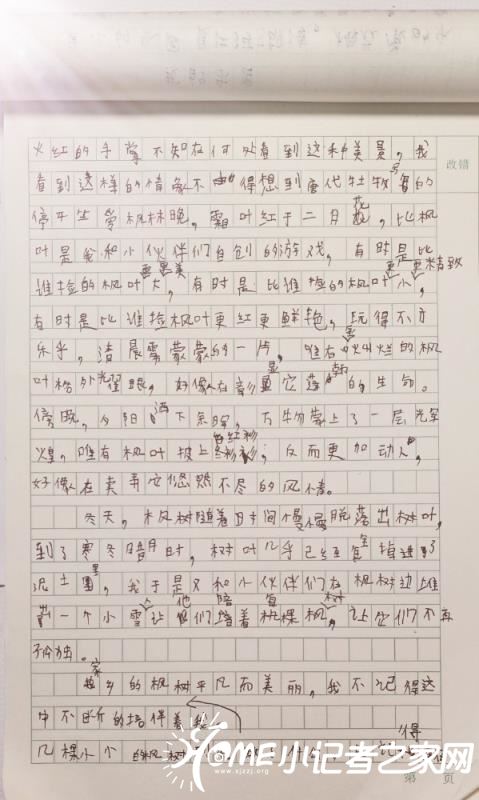 火红的手掌不知在何处看到这种美景，我
看到这样的情景不由得想到唐代杜牧写的
停车坐爱枫林晚，霜叶红于二月花，比枫
叶是我和小伙伴们自创的游戏，有时是比
谁捡的枫叶大，更完美有时是比谁捡的枫叶小，更更精致
有时是比谁捡枫叶更红更鲜艳，玩得不亦
乐乎，清晨雾蒙蒙的一片，唯有金灿烂的枫
叶格外耀眼，好像在彰显它蓬勃的生命。
傍晚，夕阳洒下余晖，万物蒙上了一层光辉
煌，唯有枫叶披上红彩，反而更加动人，
好像在卖弄它悠然不尽的风情。
冬天，枫树随着时间慢慢脱落出树叶，
到了寒冬腊月时，树叶几乎已经全掉进了
泥土里，我于是又和小伙伴们在枫树边堆
一个小雪让他们陪着每棵枫树，让它们不再
孤独。
家乡的枫树平凡而美丽，我不记得这
中不断的培伴着我
几棵小个的枫树
记得
改错
HOME小记者之家网
www.xjzzj.org
第 页